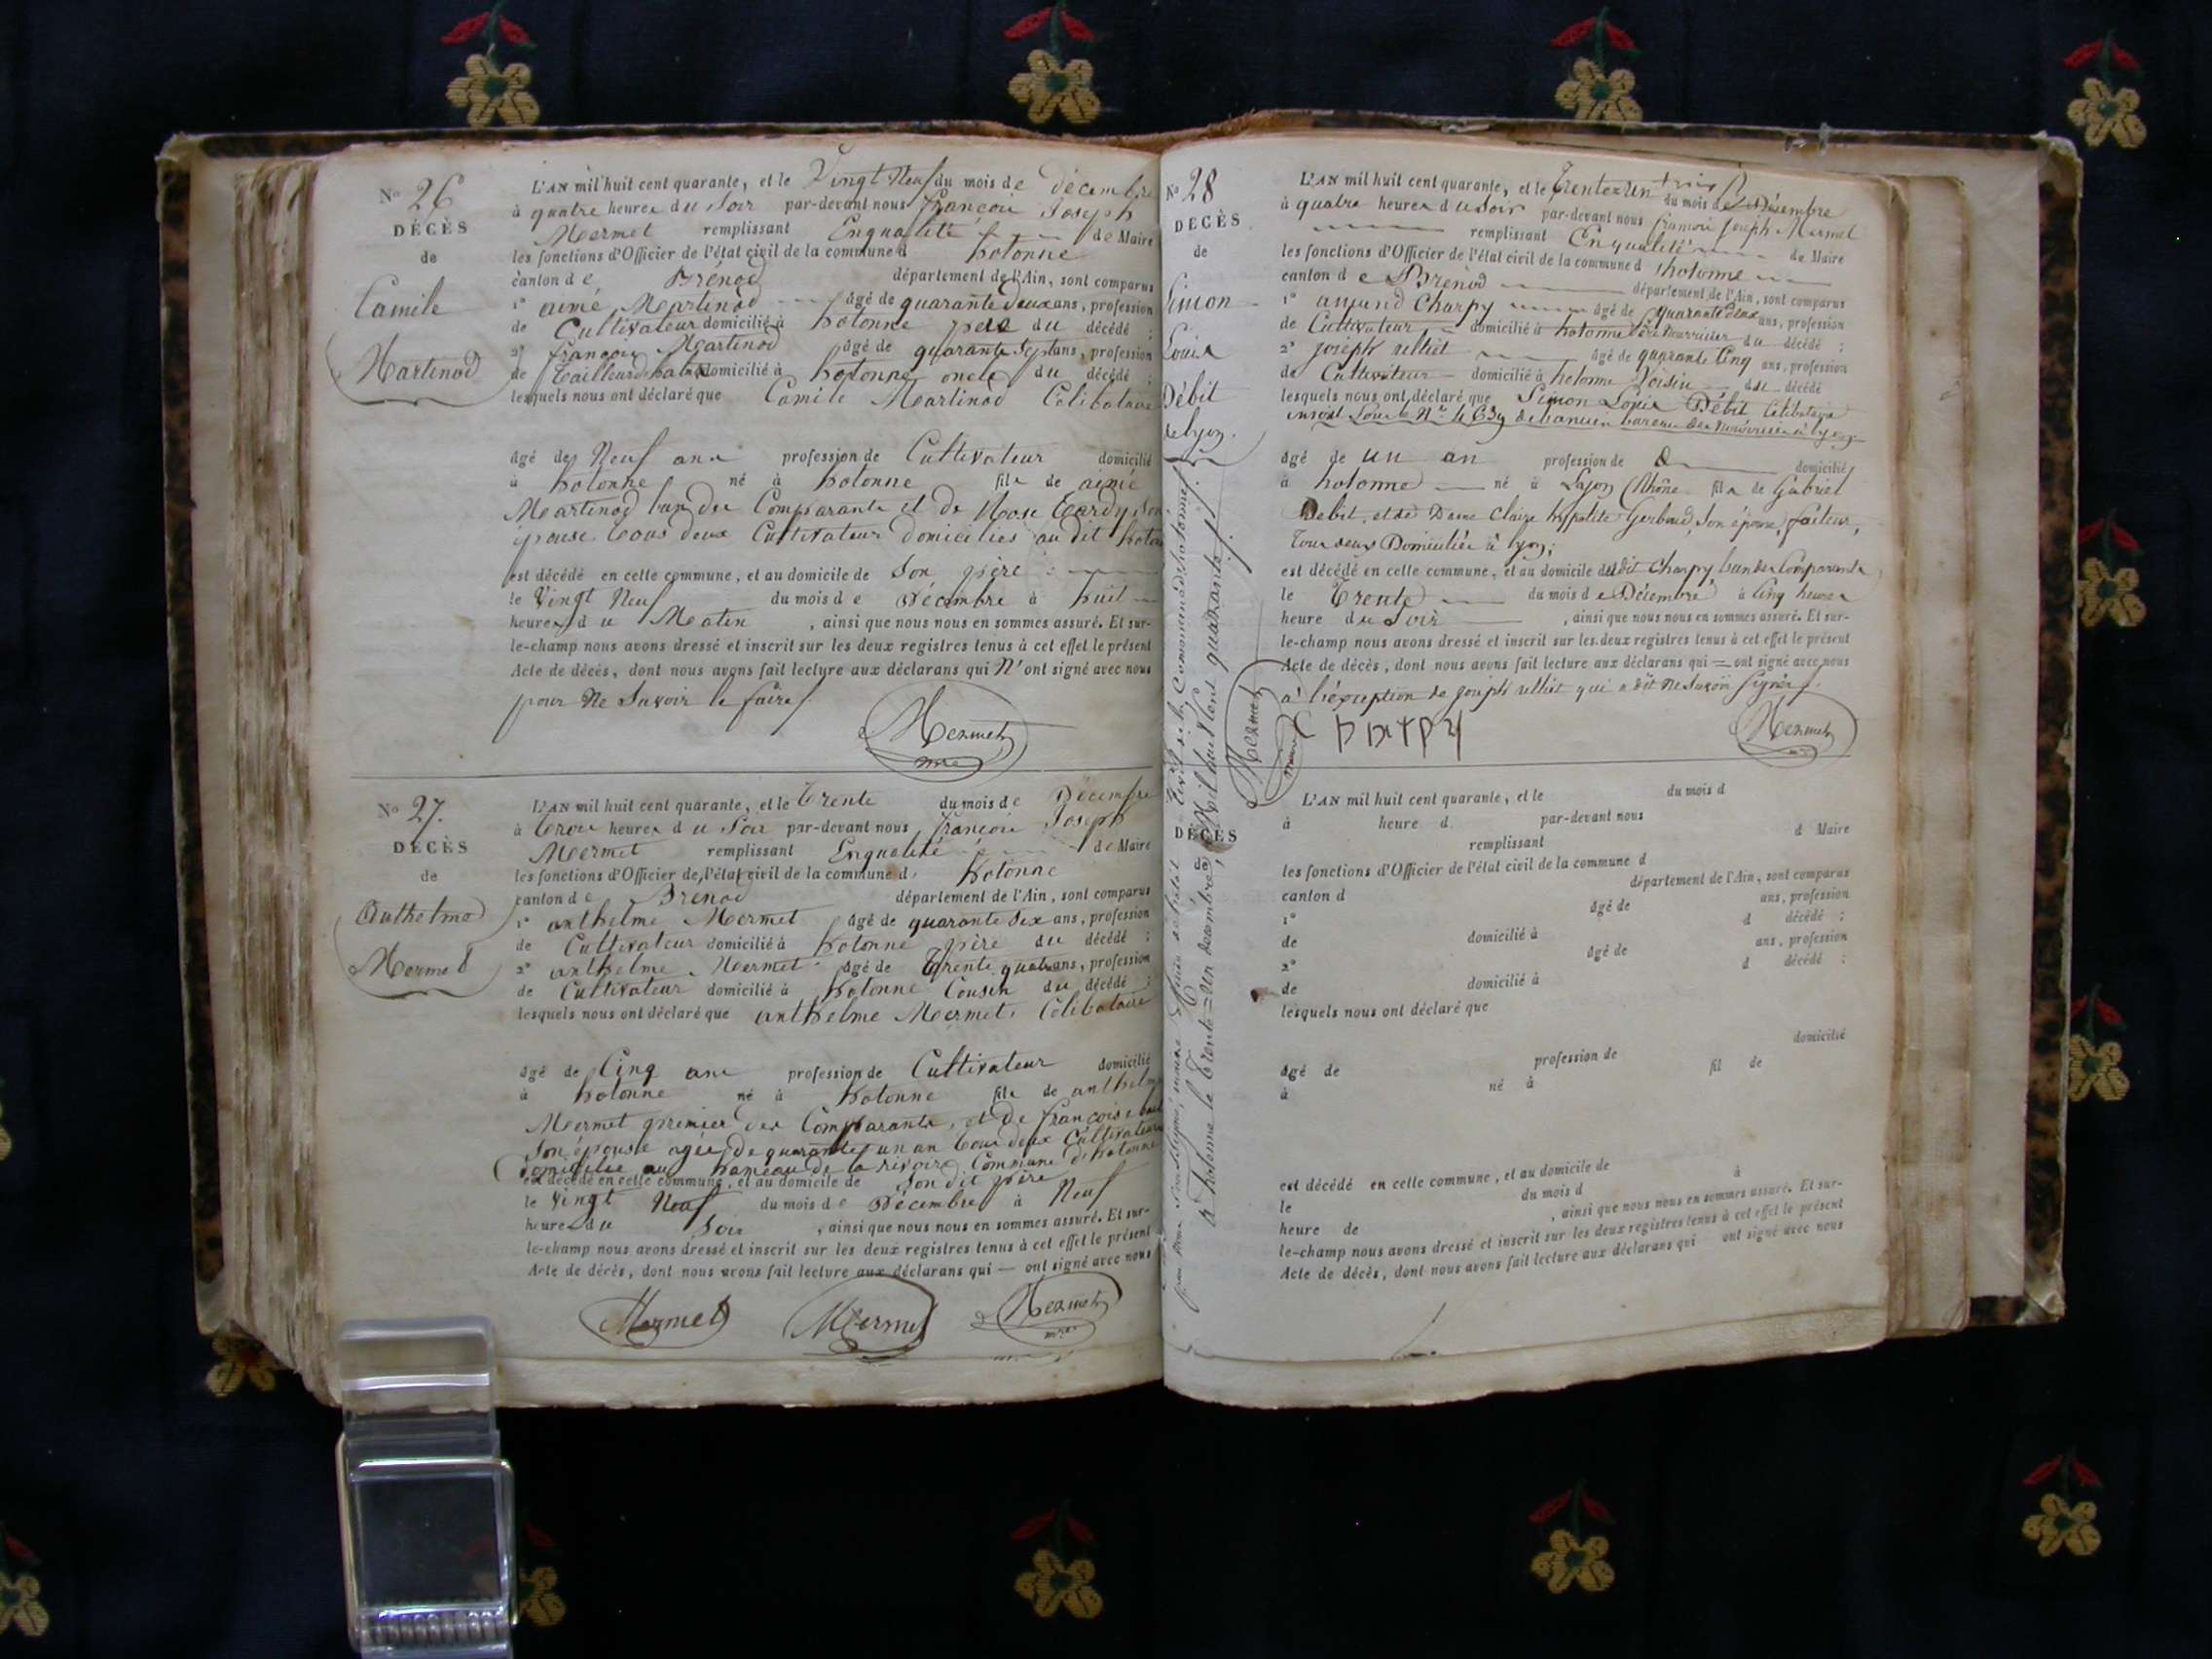 No 26
DÉCÈS
de
Camile
Martinod
L'AN mil huit cent quarante, et le Vingt Neuf du mois de décembre
à quatre heures du Soir par-devant nous françois Joseph
Mermet remplissant Enqualité de Maire
les fonctions d'Officier de l'état civil de la commune d hotonne
canton de Brénod département de l'Ain, sont comparus
1° aimé Martinod âgé de quarante deux ans, profession
de Cultivateur domicilié à hotonne père du décédé ;
2° françois Martinod âgé de quarante Sept ans, profession
de Tailleur d'habits domicilié à hotonne oncle du décédé ;
lesquels nous ont déclaré que Camile Martinod Célibataire
âgé de Neuf ans profession de Cultivateur domicilié
à hotonne né à hotonne fils de aimé
Martinod l'un des Comparants et de Rose Tardy Son
épouse tous deux Cultivateur domiciliés au dit hotonne
est décédé en cette commune, et au domicile de Son père
le Vingt Neuf du mois de Décembre à huit
heures du Matin , ainsi que nous nous en sommes assuré. Et sur-
le-champ nous avons dressé et inscrit sur les deux registres tenus à cet effet le présent
Acte de décès, dont nous avons fait lecture aux déclarans qui N'ont signé avec nous
pour Ne Savoir le faire
Mermet
mre
No 27.
DÉCÈS
de
Anthelme
Mermet
L'AN mil huit cent quarante, et le Trente du mois de Décembre
à trois heures du Soir par-devant nous françois Joseph
Mermet remplissant Enqualité de Maire
les fonctions d'Officier de l'état civil de la commune d hotonne
canton de Brenod département de l'Ain, sont comparus
1° anthelme Mermet âgé de quarante Six ans, profession
de Cultivateur domicilié à hotonne père du décédé ;
2° anthelme Mermet âgé de Trente quatre ans, profession
de Cultivateur domicilié à hotonne Cousin du décédé ;
lesquels nous ont déclaré que anthelme Mermet Célibataire
âgé de Cinq ans profession de Cultivateur domicilié
à hotonne né à hotonne fils de anthelme
Mermet premier des Comparants, et de françoise
Son épouse agée de quarante un an tous deux Cultivateurs
domiciliés au hameau de la rivoire Commune d'hotonne
est décédé en cette commune, et au domicile de Son dit père
le Vingt Neuf du mois de Décembre à Neuf
heures du Soir , ainsi que nous nous en sommes assuré. Et sur-
le-champ nous avons dressé et inscrit sur les deux registres tenus à cet effet le présent
Acte de décès, dont nous avons fait lecture aux déclarans qui — ont signé avec nous
Mermet Mermet Mermet
mre
No 28
DÉCÈS
de
Simon
Louis
Débit
de lyon.
L'AN mil huit cent quarante, et le Trente Un du mois de Décembre
à quatre heures du Soir par-devant nous françois Joseph Mermet
remplissant Enqualité de Maire
les fonctions d'Officier de l'état civil de la commune d hotonne
canton de Brénod département de l'Ain, sont comparus
1° Charpy âgé de quarante deux ans, profession
de Cultivateur domicilié à hotonne père Nourricier du décédé ;
2° joseph relliet âgé de quarante Cinq ans, profession
de Cultivateur domicilié à hotonne Voisin du décédé
lesquels nous ont déclaré que Simon Louis Débit Célibataire
âgé de un an profession de domicilié
à hotonne né à Lyon (Rhône fils de Gabriel
Debit, et de Dame Claire hyppolite Gerbaud, Son épouse, facteur,
tous deux Domiciliés à lyon;
est décédé en cette commune, et au domicile du dit Charpy l'un des Comparants
le Trente du mois de Décembre à Cinq heures
heure du Soir , ainsi que nous nous en sommes assuré. Et sur-
le-champ nous avons dressé et inscrit sur les deux registres tenus à cet effet le présent
Acte de décès, dont nous avons fait lecture aux déclarans qui = ont signé avec nous
à l'éxception de joseph relliet qui a dit ne savoir Signer
Mermet
à hotonne le Trente = un décembre Mil huit Cent quarante
Mermet
maire
DÉCÈS
de
L'AN mil huit cent quarante, et le du mois d
à heure d par-devant nous
remplissant d Maire
les fonctions d'Officier de l'état civil de la commune d
canton d département de l'Ain, sont comparus
1° âgé de ans, profession
de domicilié à d décédé ;
2° âgé de ans, profession
de domicilié à d décédé ;
lesquels nous ont déclaré que
âgé de profession de domicilié
à né à fil de
est décédé en cette commune, et au domicile de
le du mois d à
heure de , ainsi que nous nous en sommes assuré. Et sur-
le-champ nous avons dressé et inscrit sur les deux registres tenus à cet effet le présent
Acte de décès, dont nous avons fait lecture aux déclarans qui ont signé avec nous